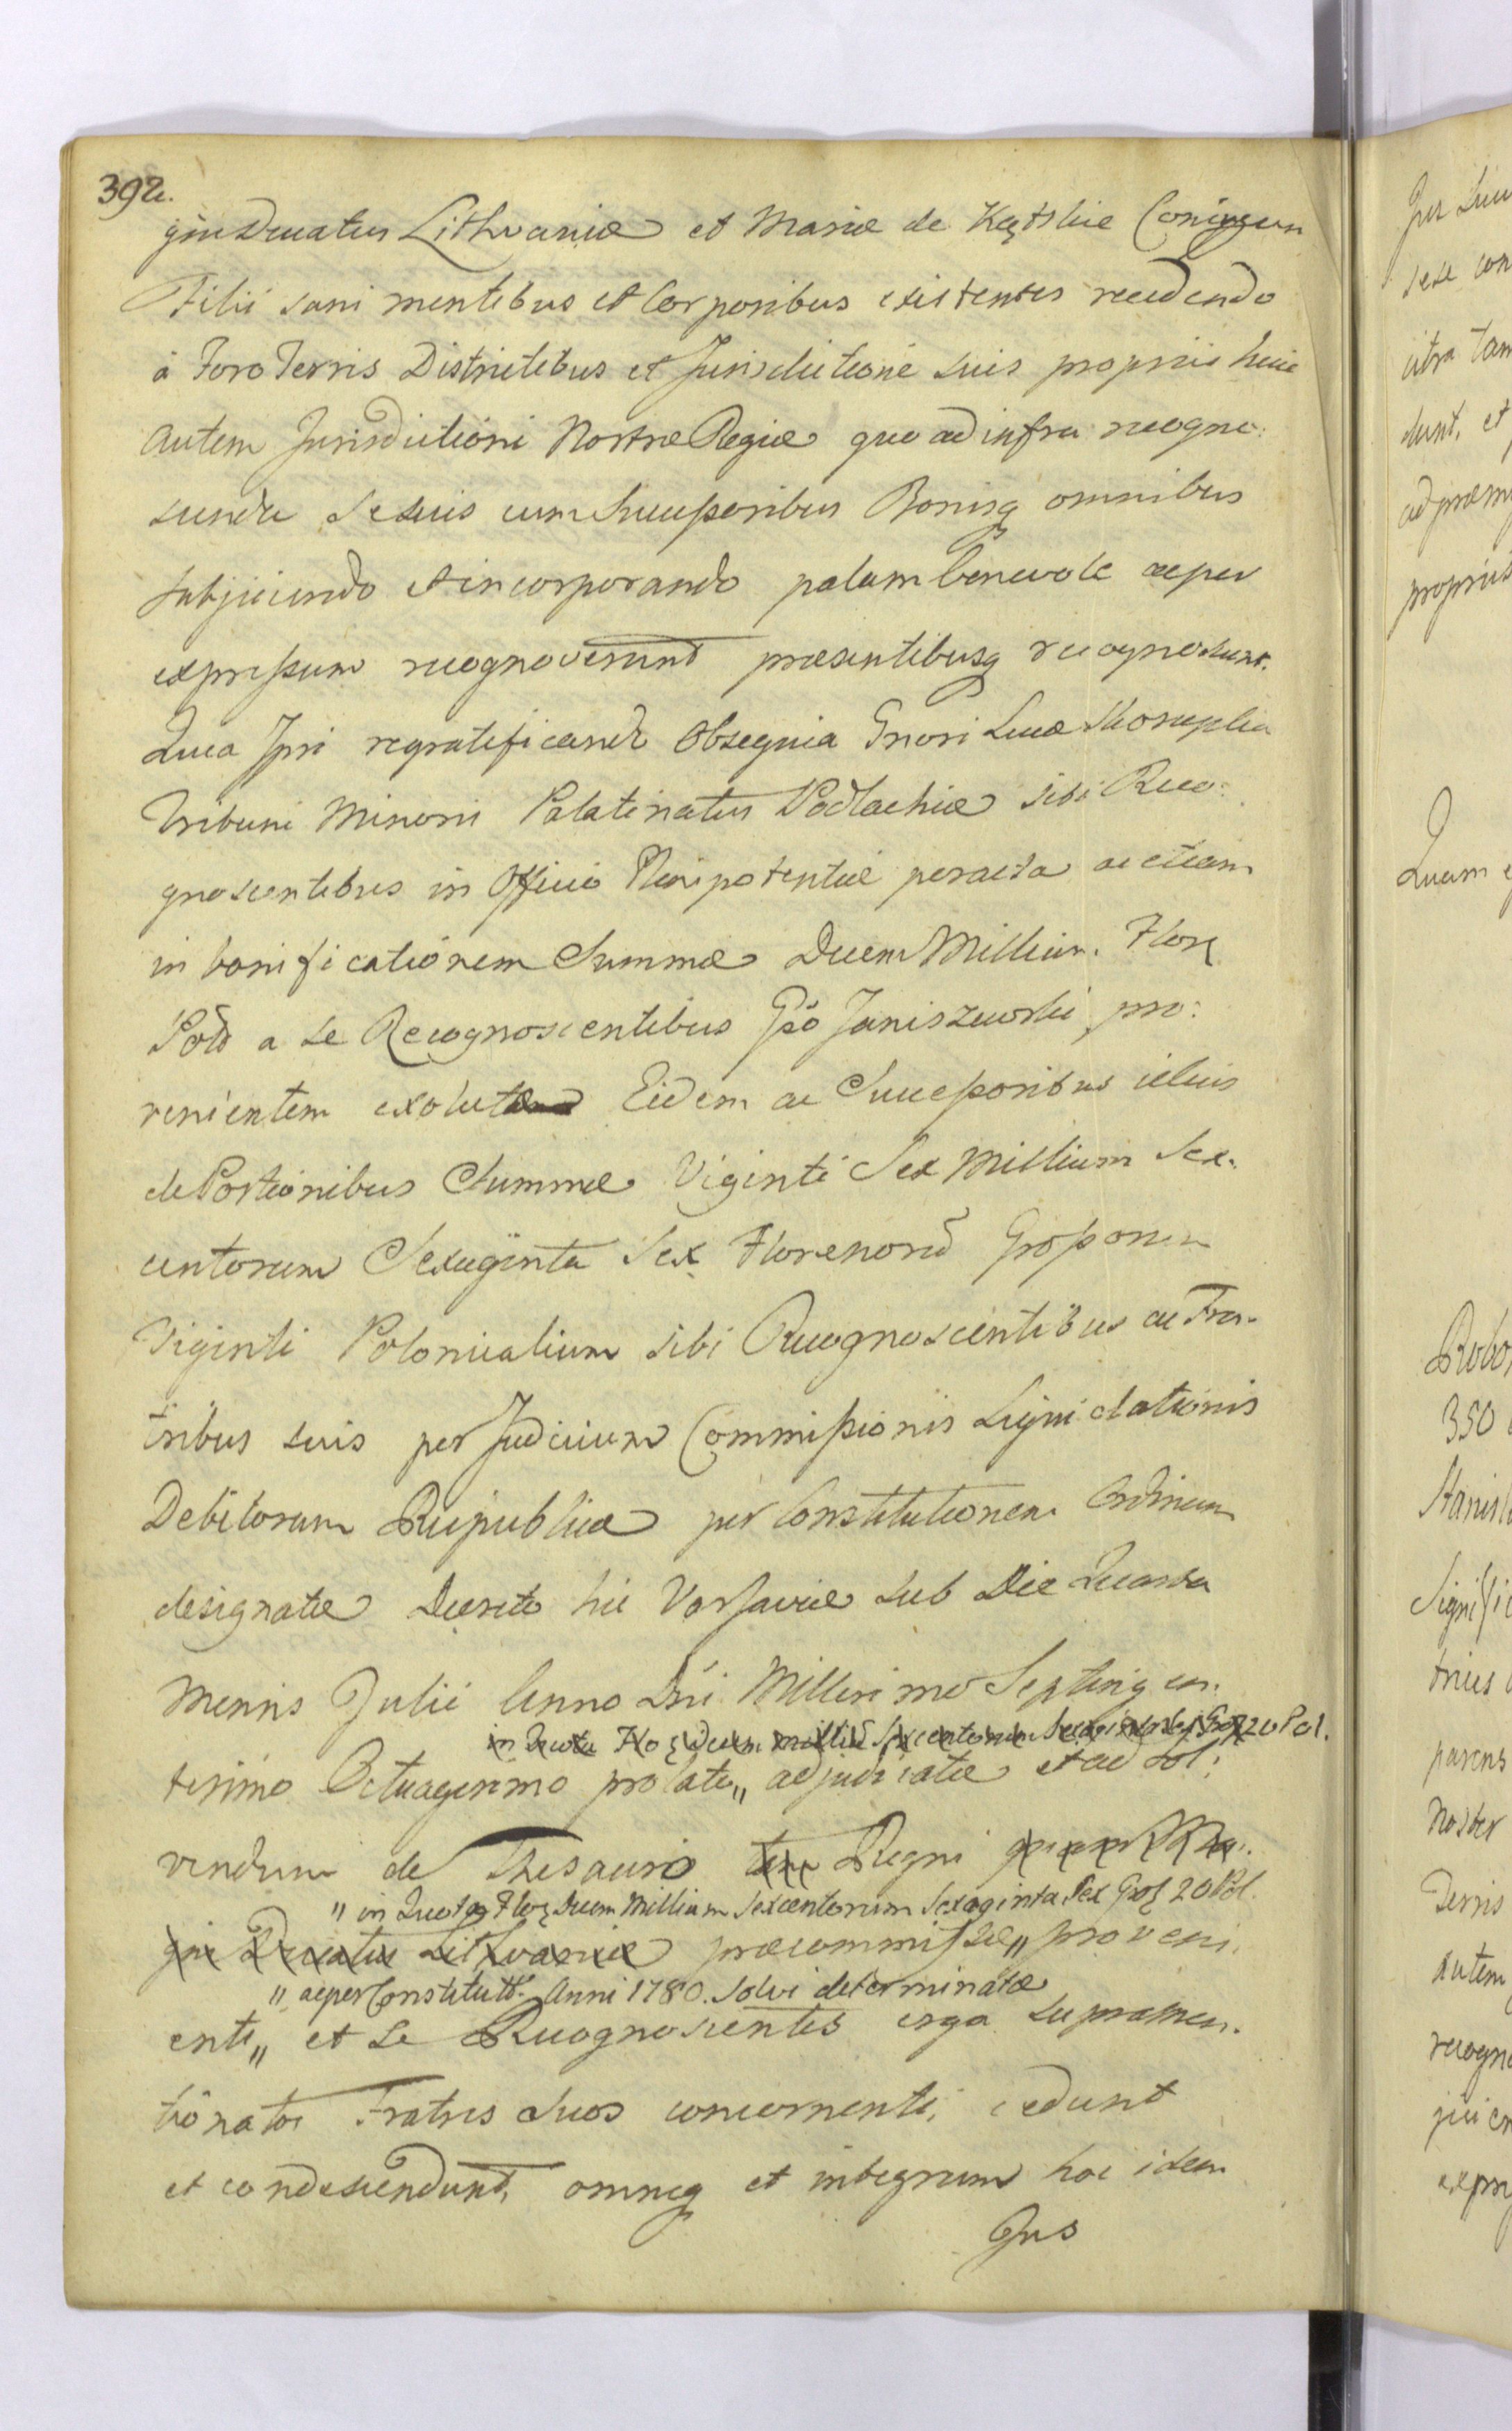 392.
gniDucatus Lithvaniæ et Mariæ de Kętskie Conjugum
Filii sani mentibus et Corporibus existentes recedendo
à Foro Terris Districtibus et Jurisdictione suis propriis huic
autem Jurisdictioni Nostræ Regiæ quo ad infra recogno:
scenda se suis cum Successoribus Bonisq omnibus
subjiciendo et incorporando palam benevole ac per
expressum recognoverunt præsentibusq recognoscunt.
Quia Ipsi regratificando Obsequia Gnosi Lucæ
Tribuni Minoris Palatinatus Podlachiæ sibi Reco:
gnoscentibus in Officio Plenipotentiæ peracta ac etiam
in bonificationem Summæ Decem Millium. Flor
Pol a se Recognoscentibus Gso Janiszewski pro:
venientem exolutæ Eidem ac Successoribus illius
de Portionibus Summæ Viginti Sex Millium Sex:
centorum Sexaginta Sex Florenorũ Grossorum
Viginti Polonicalium sibi Recognoscentibus ac Fra:
tribus suis per Judicium Commissionis Liquidationis
Debitorum Reipublicæ per Constitutionem Ordinum
designatæ Decreto hic Varsaviæ sub Die Quarta
Mensis Julii Anno Dni Millesimo Septingen:
in Quota Flor Decem Milliũ Sexcentorum Sexaginta Sex Gros 20 Pol.
tesimo Octuagesimo prolato,, adjudicatæ et ad sol:
vendum de Thesauro Regni
,, in Quota Flor Decem Millium Sexcentorum Sexaginta Sex Gros 20 Pol.
gni Ducatus Lithvaniæ præcommissæ,, proveni.
,, ac per Constitutt. Anni 1780. solvi determinatæ
ente,, et se Recognoscentes erga supramen.
tionatos Fratres suos concernente, cedunt
et condescendunt, omneq et integrum hoc idem
Jus